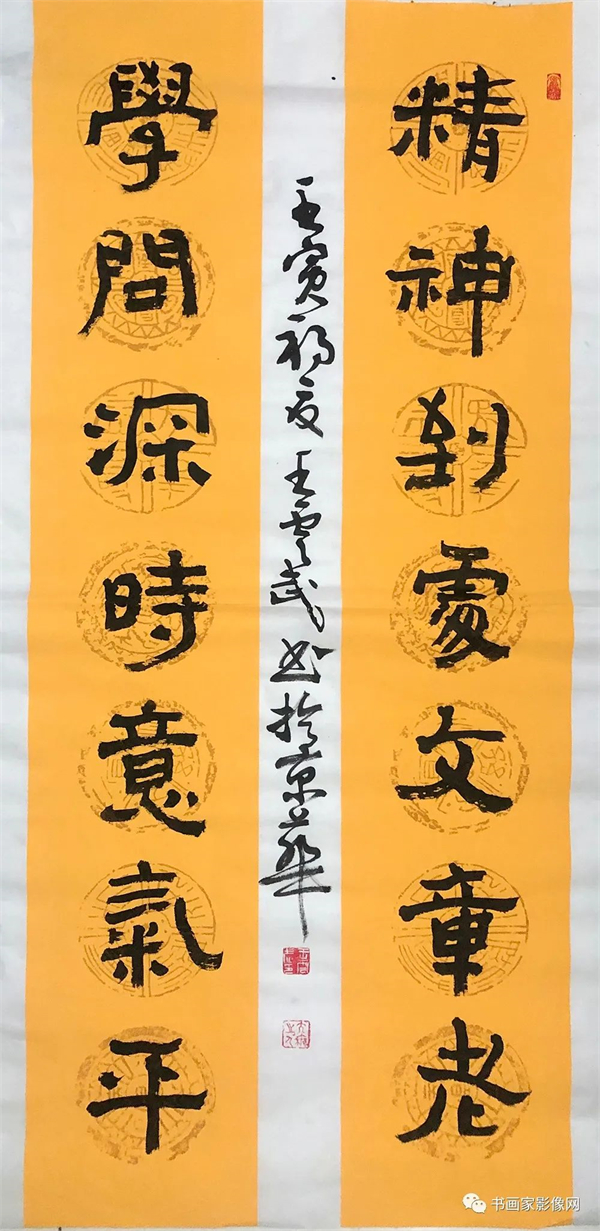 精神到處文章老
學問深時意氣平
壬寅初夏王雲武书於京華
书画家影像网